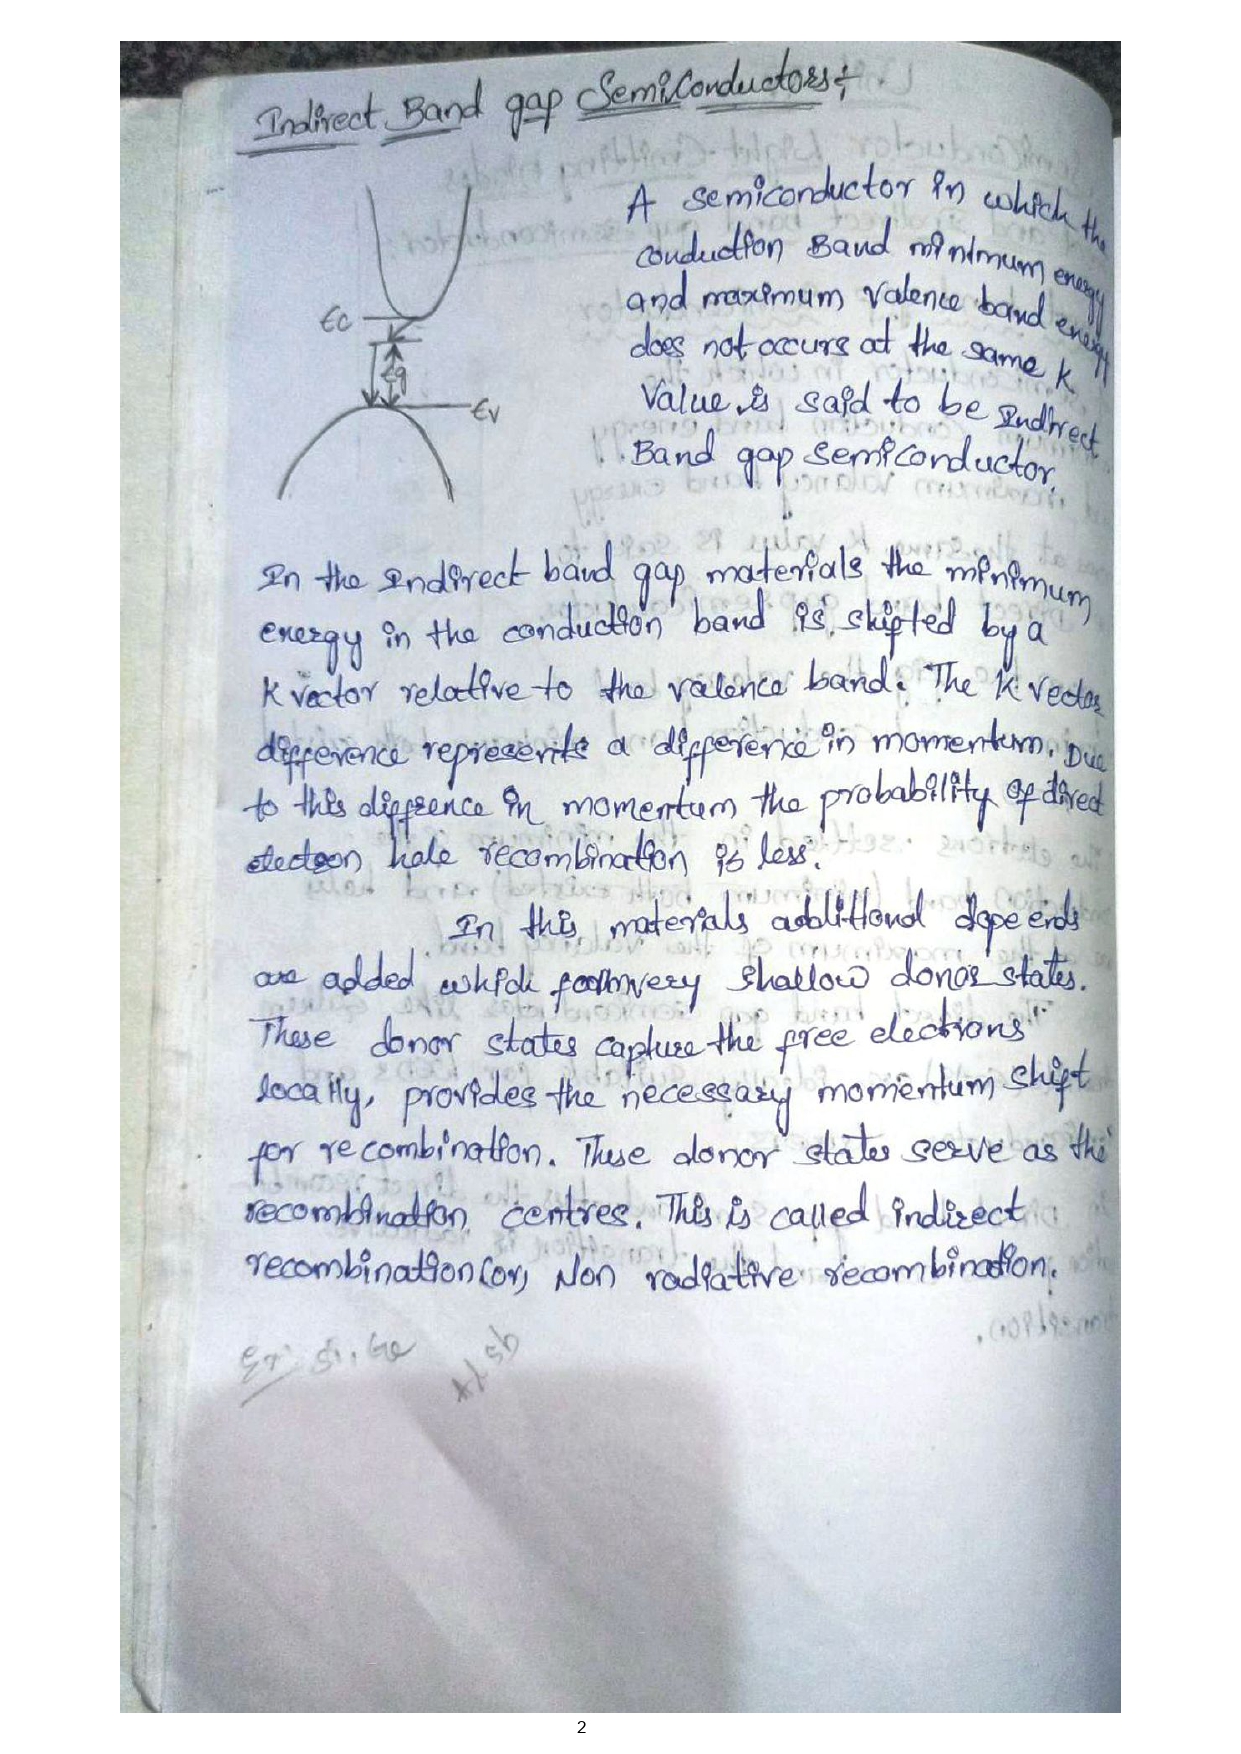 Indirect Band gap SemiConductors:-
A semiconductor in which the
conduction Band minimum energy
and maximum valence band energy
does not occurs at the same k
Value is said to be Indirect
Band gap semiconductor.
Ec
Eg
Ev
In the Indirect band gap materials the minimum
energy in the conduction band is shifted by a
K vector relative to the valence band. The K vector
difference represents a difference in momentum. Due
to this diffrence in momentum the probability of direct
electron hole recombination is less.
In this materials additional dope ends
are added which form very shallow donor states.
These donor states capture the free elections
locally, provides the necessary momentum shift
for recombination. These donor states serve as the
recombination centres. This is called indirect
recombination (or) Non radiative recombination.
Ex: Si, Ge
2